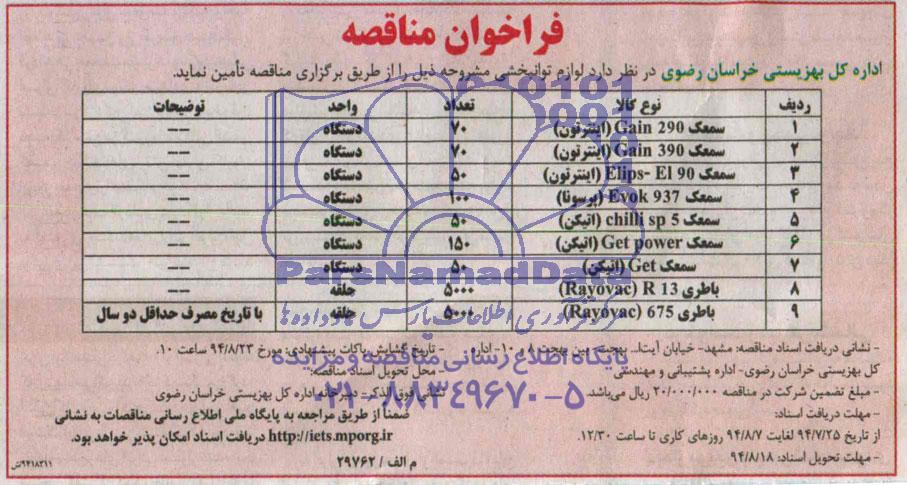 فراخوان مناقصه
اداره کل بهزیستی خراسان رضوی در نظر دارد لوازم توانبخشی مشروحه ذیل را از طریق برگزاری مناقصه تأمین نماید.
ردیف نوع کالا تعداد واحد توضیحات
۱ سمعک Gain 290 (اینترتون) ۷۰ دستگاه ---
۲ سمعک Gain 390 (اینترتون) ۷۰ دستگاه ---
۳ سمعک Elips- El 90 (اینترتون) ۵۰ دستگاه ---
۴ سمعک Evok 937 (پرسونا) ۱۰۰ دستگاه ---
۵ سمعک chilli sp 5 (اتیکن) ۵۰ دستگاه ---
۶ سمعک Get power (اتیکن) ۱۵۰ دستگاه ---
۷ سمعک Get (اتیکن) ۵۰ دستگاه ---
۸ باطری R 13 (Rayovac) ۵۰۰۰ حلقه ---
۹ باطری 675 (Rayovac) ۵۰۰۰ حلقه با تاریخ مصرف حداقل دو سال
- نشانی دریافت اسناد مناقصه: مشهد- خیابان آیت‌ا... بهجت- بین بهجت ۸ و ۱۰- اداره
کل بهزیستی خراسان رضوی- اداره پشتیبانی و مهندسی
- مبلغ تضمین شرکت در مناقصه ۲۰/۰۰۰/۰۰۰ ریال می‌باشد.
- مهلت دریافت اسناد:
از تاریخ ۹۴/۷/۲۵ لغایت ۹۴/۸/۷ روزهای کاری تا ساعت ۱۲/۳۰.
- مهلت تحویل اسناد: ۹۴/۸/۱۸
- تاریخ گشایش پاکات پیشنهادی: مورخ ۹۴/۸/۲۳ ساعت ۱۰.
- محل تحویل اسناد مناقصه:
نشانی فوق الذکر- دبیرخانه اداره کل بهزیستی خراسان رضوی
ضمناً از طریق مراجعه به پایگاه ملی اطلاع رسانی مناقصات به نشانی
http://iets.mporg.ir دریافت اسناد امکان پذیر خواهد بود.
م الف / ۲۹۷۶۲
۹۴۱۸۳۱۱ش
ParsNamadData
مرکز فرآوری اطلاعات پارس نماد داده‌ها
پایگاه اطلاع رسانی مناقصه و مزایده
۰۲۱-۸۸۳۴۹۶۷۰-۵